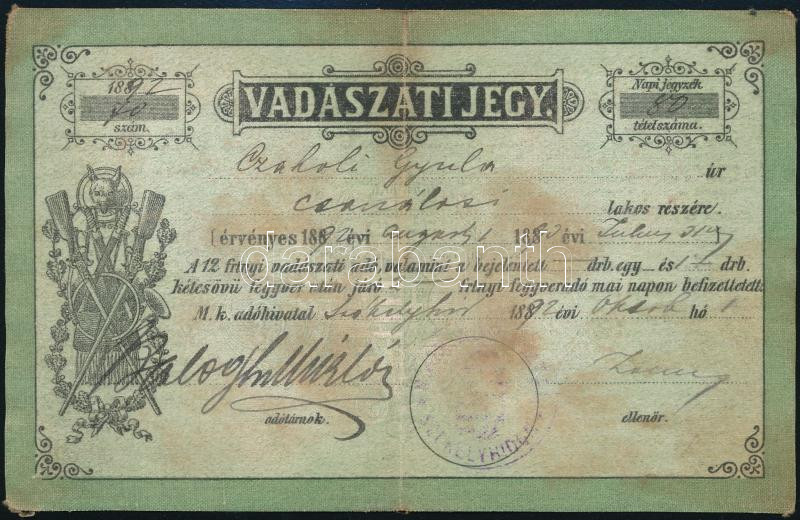 1892
VADÁSZATI JEGY.
Napi jegyzék
70
szám.
tételszáma.
Gyula úr
lakos részére.
érvényes 1892 évi august 1 18 évi Julius 31
A 12 frtnyi vadászati adó, valamint a bejelentett drb. egy — és 1 drb.
kétcsövü fegyver után járó frtnyi fegyveradó mai napon befizettetett.
M. k. adóhivatal Székelyhid 1892 évi Oktob hó 1
Balogh Miklós
adótárnok.
ellenőr.
SZÉKELYHIDON
darabanth